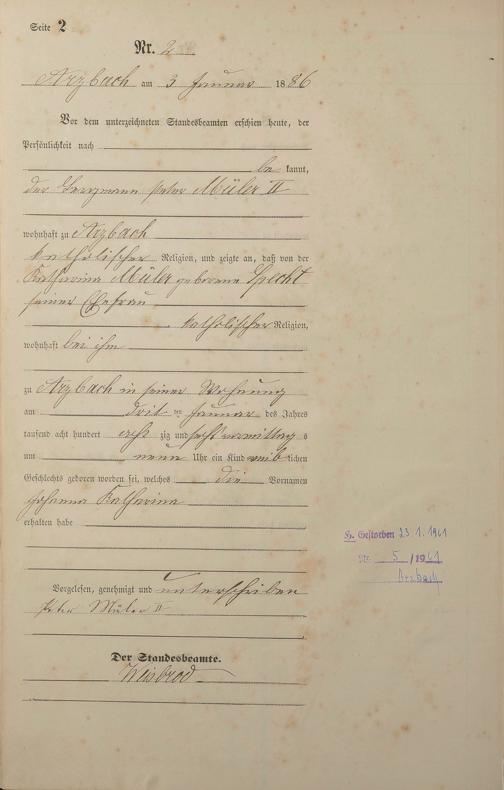 Seite 2
Nr. 2
Arzbach am 3 Januar 1886
Vor dem unterzeichneten Standesbeamten erschien heute, der
Persönlichkeit nach
be kannt,
der Bergmann Peter Müler II
wohnhaft zu Arzbach
katholischer Religion, und zeigte an, daß von der
Katharina Müler geborene Specht
seiner Ehefrau
katholischer Religion,
wohnhaft bei ihm
zu Arzbach in seiner Wohnung
am Drit ten Januar des Jahres
tausend acht hundert acht zig und sechs vormittag s
um neun Uhr ein Kind weib lichen
Geschlechts geboren worden sei, welches die Vornamen
Johanna Katharina
erhalten habe
Vorgelesen, genehmigt und unterschriben
Peter Müler II
Der Standesbeamte.
Weisbrod
H. Gestorben 23.1.1961
Nr. 5/1961
Arzbach